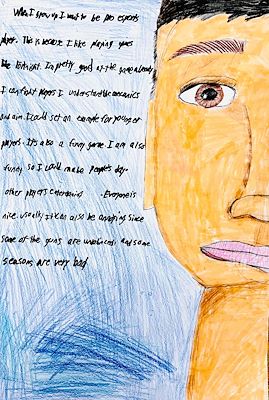 When I grow up I want to be pro esports
player. This is because I like playing games
like fortnight. Im pretty good at the game already
I can fight players I understand the mechanics
and aim. I could set an example for younger
players. It's also a funny game I am also
funny so I could make people's day.
other players entertained. Everyone is
nice usually. It can also be annoying since
some of the guns are unbalanced and some
seasons are very bad